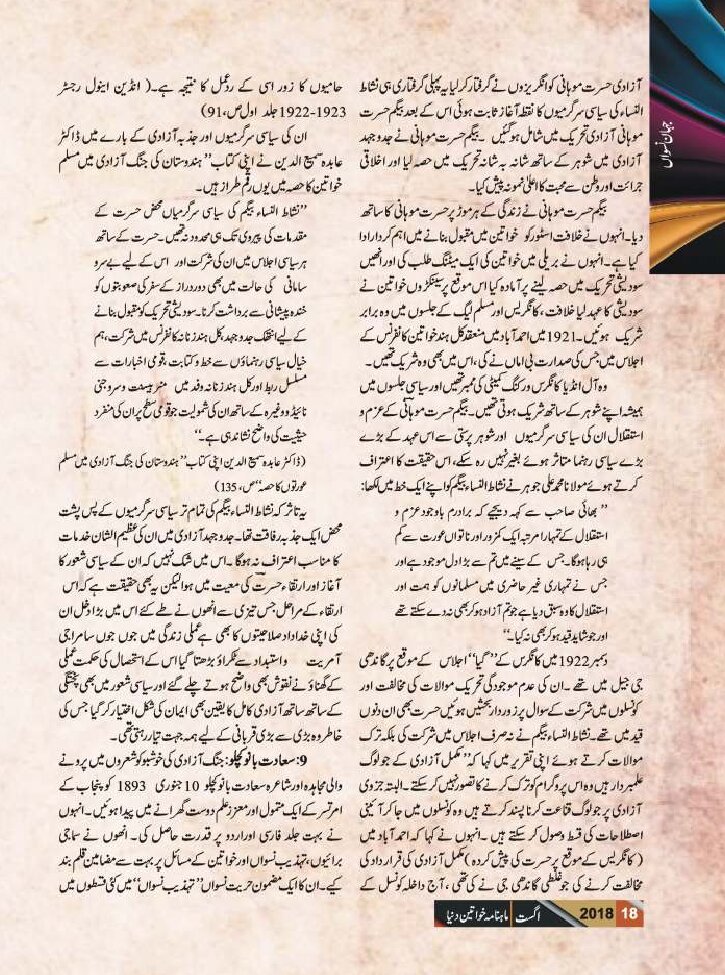 جہان نسواں
آزادی حسرت موہانی کو انگریزوں نے گرفتار کر لیا یہ پہلی گرفتاری ہی نشاط
النساء کی سیاسی سرگرمیوں کا نقطۂ آغاز ثابت ہوئی اس کے بعد بیگم حسرت
موہانی آزادی تحریک میں شامل ہوگئیں۔ بیگم حسرت موہانی نے جدوجہد
آزادی میں شوہر کے ساتھ شانہ بہ شانہ تحریک میں حصہ لیا اور اخلاقی
جرائت اور وطن سے محبت کا اعلیٰ نمونہ پیش گیا۔
بیگم حسرت موہانی نے زندگی کے ہر موڑ پر حسرت موہانی کا ساتھ
دیا۔ انہوں نے خلافت اسٹور کو خواتین میں مقبول بنانے میں اہم کردار ادا
کیا ہے۔ انہوں نے بریلی میں خواتین کی ایک میٹنگ طلب کی اور انھیں
سودیشی تحریک میں حصہ لینے پر آمادہ کیا اس موقع پر سینکڑوں خواتین نے
سودیشی کا عہد لیا خلافت، کانگریس اور مسلم لیگ کے جلسوں میں وہ برابر
شریک ہوئیں۔ 1921 میں احمد آباد میں منعقد کل ہند خواتین کانفرنس کے
اجلاس میں جس کی صدارت بی اماں نے کی، اس میں بھی وہ شریک تھیں۔
وہ آل انڈیا کانگرس ورکنگ کمیٹی کی ممبر تھیں اور سیاسی جلسوں میں
ہمیشہ اپنے شوہر کے ساتھ شریک ہوتی تھیں۔ بیگم حسرت موہانی کے عزم و
استقلال ان کی سیاسی سرگرمیوں اور شوہر پرستی سے اس عہد کے بڑے
بڑے سیاسی رہنما متاثر ہوئے بغیر نہیں رہ سکے، اس حقیقت کا اعتراف
کرتے ہوئے مولانا محمد علی جوہر نے نشاط النساء بیگم کو اپنے ایک خط میں لکھا:
" بھائی صاحب سے کہہ دیجیے کہ برادرم باوجود عزم و
استقلال کے تمہارا مرتبہ ایک کمزور اور ناتواں عورت سے کم
ہی رہا ہوگا۔ جس کے سینے میں تم سے بڑا دل موجود ہے اور
جس نے تمہاری غیر حاضری میں مسلمانوں کو ہمت اور
استقلال کا وہ سبق دیا ہے جو تم آزاد ہو کر بھی نہ دے سکتے تھے
اور جو شاید قید ہو کر بھی نہ کیا۔"
دسمبر 1922 میں کانگرس کے "گیا" اجلاس کے موقع پر گاندھی
جی جیل میں تھے۔ ان کی عدم موجودگی تحریک موالات کی مخالفت اور
کونسلوں میں شرکت کے سوال پر زوردار بحثیں ہوئیں حسرت بھی ان دنوں
قید میں تھے۔ نشاط النساء بیگم نے نہ صرف اجلاس میں شرکت کی بلکہ ترک
موالات کرتے ہوئے اپنی تقریر میں کہا کہ" مکمل آزادی کے جو لوگ
علمبردار ہیں وہ اس پروگرام کو ترک کرنے کا تصور نہیں کرسکتے۔ البتہ جزوی
آزادی پر جو لوگ قناعت کرنا پسند کرتے ہیں وہ کونسلوں میں جا کر آئینی
اصطلاحات کی قسط وصول کرسکتے ہیں۔ انہوں نے کہا کہ احمد آباد میں
(کانگریس کے موقع پر حسرت کی پیش کردہ) مکمل آزادی کی قرارداد کی
مخالفت کرنے کی جو غلطی گاندھی جی نے کی تھی، آج داخلہ کونسل کے
حامیوں کا زور اسی کے ردعمل کا نتیجہ ہے۔ (انڈین اینول رجسٹر
1922-1923 جلد اول ص، 91)
ان کی سیاسی سرگرمیوں اور جذبہ آزادی کے بارے میں ڈاکٹر
عابدہ سمیع الدین نے اپنی کتاب "ہندوستان کی جنگ آزادی میں مسلم
خواتین کا حصہ میں یوں رقم طراز ہیں۔
"نشاط النساء بیگم کی سیاسی سرگرمیاں محض حسرت کے
مقدمات کی پیروی تک ہی محدود نہ تھیں۔ حسرت کے ساتھ
ہر سیاسی اجلاس میں ان کی شرکت اور اس کے لیے بے سرو
سامانی کی حالت میں بھی دور دراز کے سفر کی صعوبتوں کو
خندہ پیشانی سے برداشت کرنا۔ سودیشی تحریک کو مقبول بنانے
کے لیے انتھک جدوجہد، کل ہند زنانہ کانفرنس میں شرکت، ہم
خیال سیاسی رہنماؤں سے خط و کتابت، قومی اخبارات سے
مسلسل ربط اور کل ہند زنانہ وفد میں مسز بیسنٹ و سروجنی
نائیڈو وغیرہ کے ساتھ ان کی شمولیت جو قومی سطح پر ان کی منفرد
حیثیت کی واضح نشاندہی ہے۔"
(ڈاکٹر عابدہ سمیع الدین اپنی کتاب "ہندوستان کی جنگ آزادی میں مسلم
عورتوں کا حصہ" ص، 135)
یہ تاثر کہ نشاط النساء بیگم کی تمام تر سیاسی سرگرمیوں کے پس پشت
محض ایک جذبہ رفاقت تھا۔ جدوجہد آزادی میں ان کی عظیم الشان خدمات
کا مناسب اعتراف نہ ہوگا۔ اس میں شک نہیں کہ ان کے سیاسی شعور کا
آغاز اور ارتقاء حسرت کی معیت میں ہوا لیکن یہ بھی حقیقت ہے کہ اس
ارتقاء کے مراحل جس تیزی سے انھوں نے طے کئے اس میں بڑا دخل ان
کی اپنی خداداد صلاحیتوں کا بھی ہے عملی زندگی میں جوں جوں سامراجی
آمریت واستبداد سے ٹکراؤ بڑھتا گیا اس کے استحصال کی حکمت عملی
کے گھناؤنے نقوش بھی واضح ہوتے چلے گئے اور سیاسی شعور میں بھی پختگی
کے ساتھ ساتھ آزادی کامل کا یقین بھی ایمان کی شکل اختیار کر گیا جس کی
خاطر وہ بڑی سے بڑی قربانی کے لیے ہمہ جہت تیار رہتی تھی۔
9: سعادت بانو کچلو: جنگ آزادی کی خوشبو کو شعروں میں پرونے
والی مجاہدہ اور شاعرہ سعادت بانو کچلو 10 جنوری 1893 کو پنجاب کے
امرتسر کے ایک متمول اور معزز علم دوست گھرانے میں پیدا ہوئیں۔ انہوں
نے بہت جلد فارسی اور اردو پر قدرت حاصل کی۔ انھوں نے سماجی
برائیوں، تہذیب نسواں اور خواتین کے مسائل پر بہت سے مضامین قلم بند
کیے۔ ان کا ایک مضمون حریت نسواں "تہذیب نسواں" میں کئی قسطوں میں
ماہنامہ خواتین دنیا اگست 2018 18